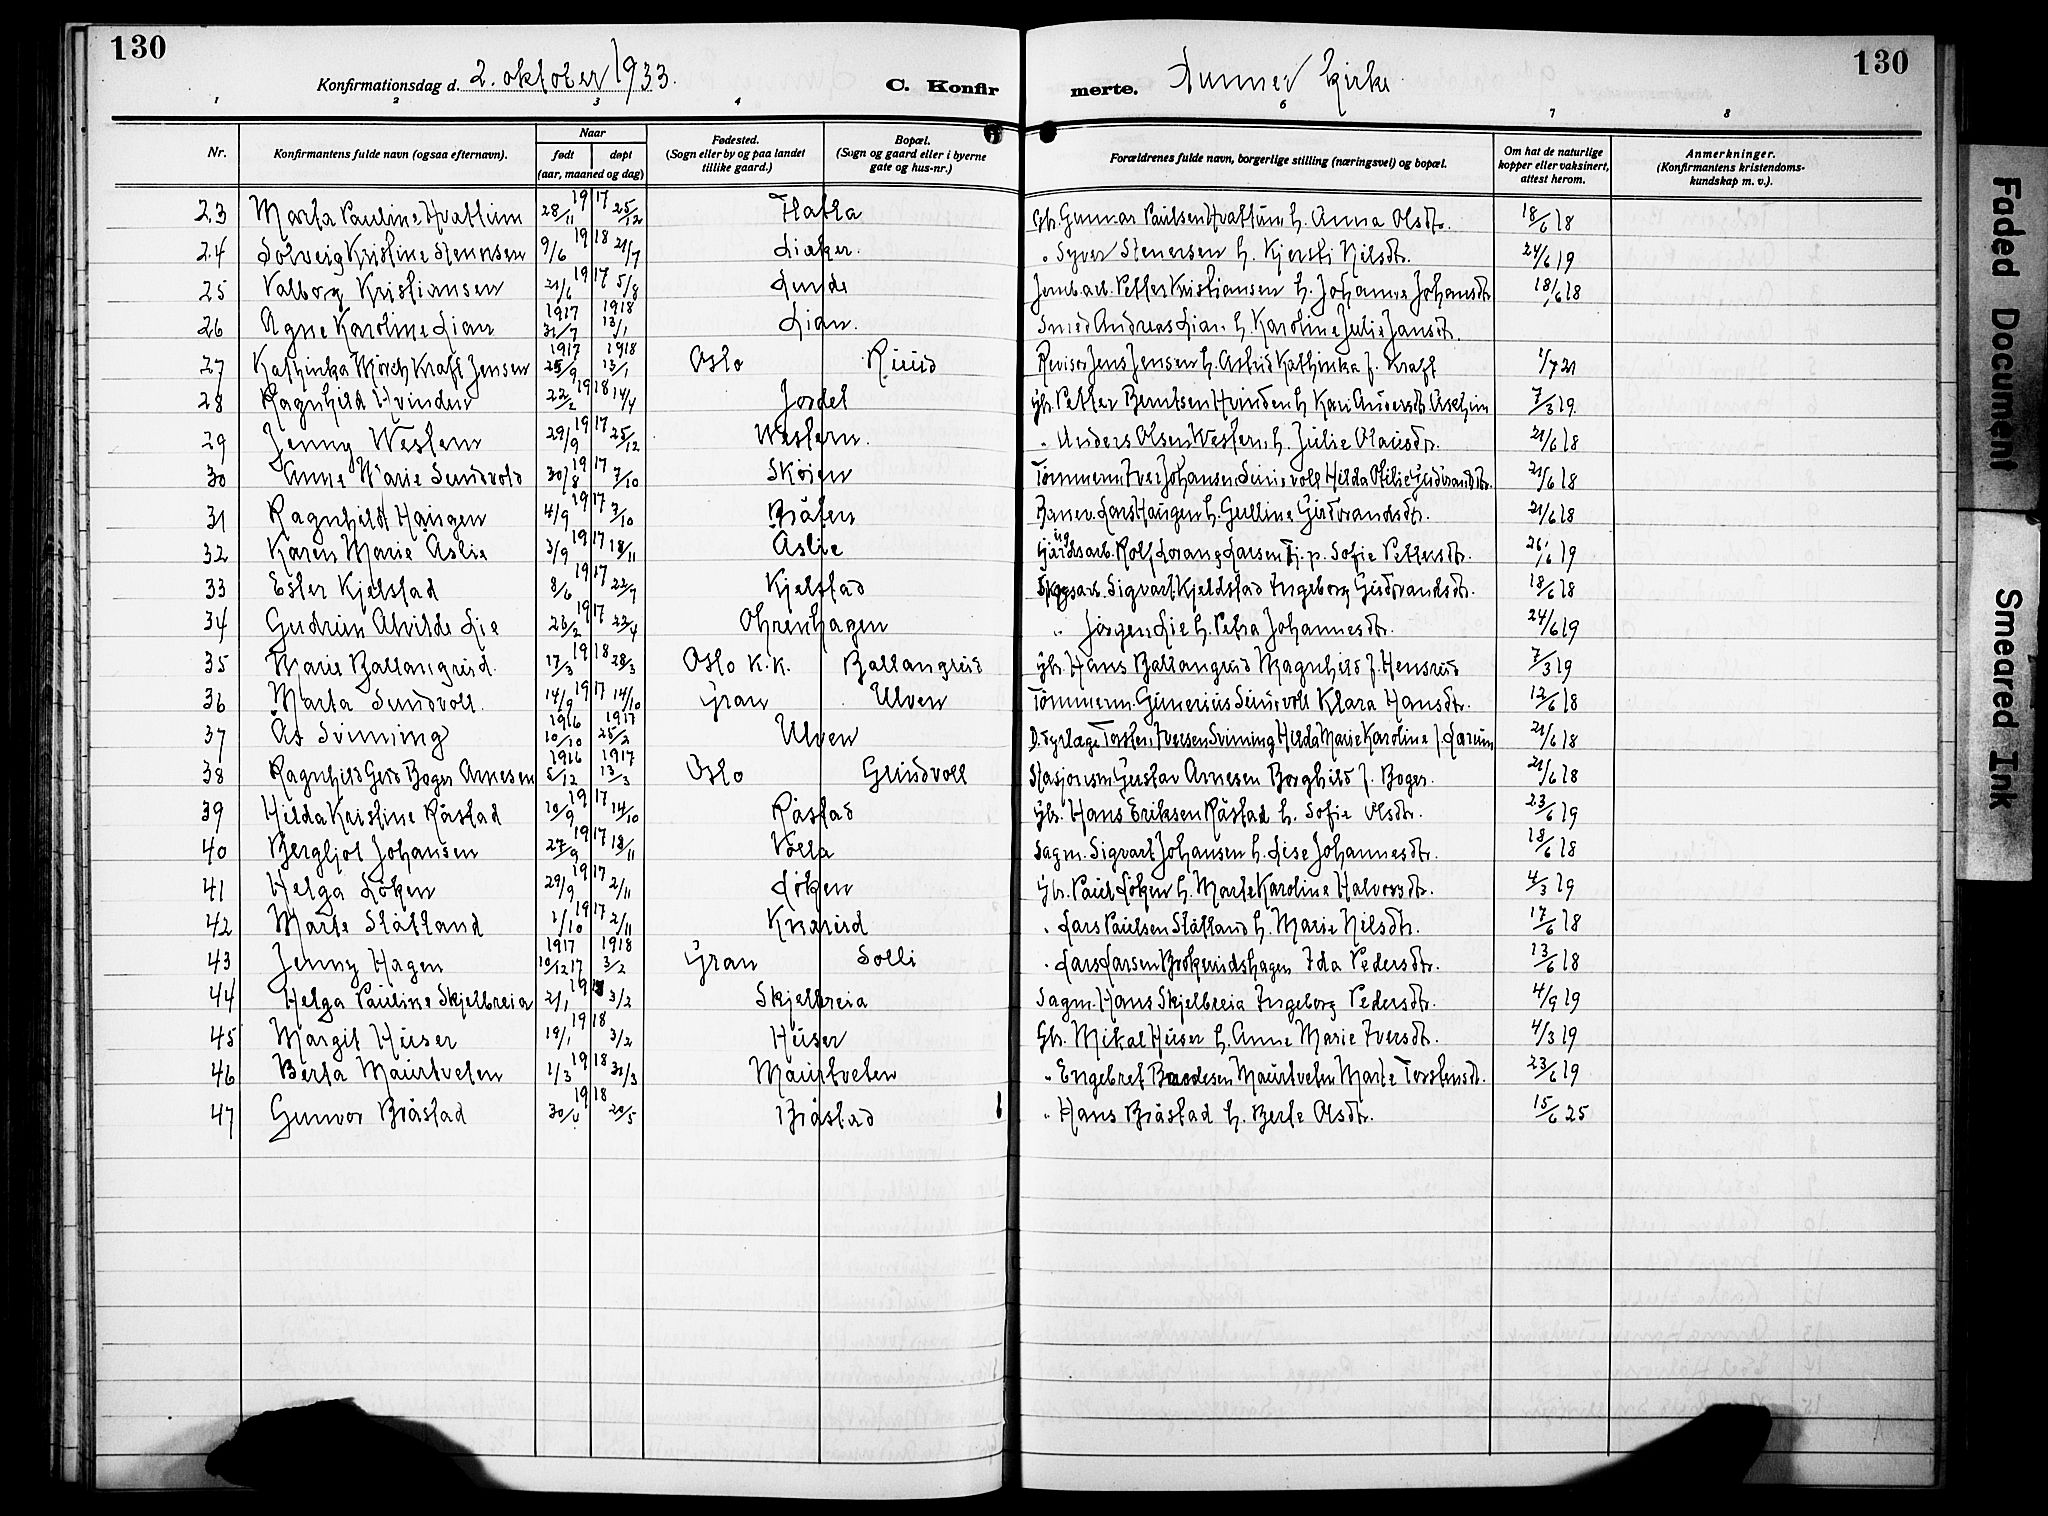 130
130
Konfirmationsdag d. 2. oktober 1933.
C. Konfirmerte.
kirke
1 2 3 4 6 7 8
Nr.
Konfirmantens fulde navn (ogsaa efternavn).
Naar
født
døpt
(aar, maaned og dag)
Fødested.
(Sogn eller by og paa landet
tillike gaard.)
Bopæl.
(Sogn og gaard eller i byerne
gate og hus-nr.)
Forældrenes fulde navn, borgerlige stilling (næringsvei) og bopæl.
Om hat de naturlige
kopper eller vaksinert,
attest herom.
Anmerkninger.
(Konfirmantens kristendoms-
kundskap m. v.).
23 Marta Pauline Hvattum 28/11 1917 25/12 Flatla Gbr. Gunnar Paulsen Hvattum h. Anna Olsdtr. 18/6 18
24 Solveig Kristine Stenersen 9/6 1918 21/7 Liaker. " Syver Stenersen h. Kjersti Nilsdtr. 24/6 19
25 Valborg Kristiansen 21/6 1917 5/8 Lunde Jernbarb. Petter Kristiansen h. Johanne Johansdtr 18/6 18
26 Agne Karoline Lian 31/7 1917 13/1 1918 Lian. Smed Andreas Lian h. Karoline Julie Jansdtr.
27 Kathinka Mørch Kraft Jensen 25/9 1917 13/1 1918 Oslo Ruud Revisor Jens Jensen h. Astrid Kathinka f. Kraft 1/7 21
28 Ragnhild Hvinden 22/2 1918 14/4 Jordet Gbr. Petter Berntsen Hvinden h Kari Andersdtr. Askjum 7/3 19.
29 Jenny Western 29/9 1917 25/12 Western. " Anders Olsen Western, h. Julie Olausdtr. 21/6 18
30 Anne Marie Sundvold 30/8 1917 7/10 Skøien Tømmerm. Iver Johansen Sundvoll Hilda Otilie Gudbrandsdtr. 21/6 18
31 Ragnhild Haugen 4/9 1917 3/10 Bråten Banev. Lars Haugen h. Gulline Gudbrandsdtr. 21/6 18
32 Karen Marie Aslie 3/9 1917 18/11 Aslie Gårdsarb. Rolf Larsen Tj. p. Sofie Pettersdtr. 26/6 19
33 Ester Kjelstad 8/6 1917 22/7 Kjelstad Skogsarb. Sigvart Kjeldstad Ingeborg Gudbrandsdtr. 18/6 18
34 Gudrun Alvilde Lie 23/2 1917 22/4 Ohrenhagen " Jørgen Lie h. Petra Johannesdtr. 24/6 19
35 Marie Ballangrud. 17/3 1918 28/3 Oslo K.K. Ballangrud Gbr. Hans Ballangrud Magnhild f. Hensrud 7/3 19
36 Marta Sundvoll. 14/9 1917 14/10 Gran Ulven Tømmerm. Gunerius Sundvoll Klara Hansdtr. 12/6 18
37 Ås Svinning 10/10 1916 25/2 1917 Ulven D. dyrlæge Torsten Iversen Svinning Hilda Marie Karoline f. Larum 21/6 18
38 Ragnhild Gerd Boger Arnesen 5/12 1916 13/3 1917 Oslo Grindvoll Stasjonsm. Gustav Arnesen Borghild f. Boger. 21/6 18
39 Hilda Kristine Råstad 10/9 1917 14/10 Råstad Gbr. Hans Eriksen Råstad h. Sofie Olsdtr. 23/6 19
40 Bergljot Johansen 27/9 1917 18/11 Volla Sagm. Sigvart Johansen h. Lise Johannesdtr. 18/6 18
41 Helga Løken 29/9 1917 2/11 Løken Gbr. Paul Løken h. Marte Karoline Halvorsdtr. 4/3 19
42 Marte Slåtland 1/10 1917 2/11 Knarud " Lars Paulsen Slåtland h. Marie Nilsdtr. 17/6 18
43 Jenny Hagen 10/12 17 1917 3/2 1918 Gran Solli " Lars Larsen Brokerudshagen Ida Pedersdtr. 13/6 18
44 Helga Pauline Skjelbreia 21/1 1918 3/2 Skjelbreia Sagm. Hans Skjelbreia Ingeborg Pedersdtr. 4/9 19
45 Margit Huser 19/1 1918 3/2 Huser Gbr. Mikal Huser h. Anne Marie Iversdtr. 4/3 19
46 Berta Maurtveten 1/3 1918 31/3 Maurtveten " Engebret Maurtveten Marte Torstensdtr. 23/6 19
47 Gunvor Bråstad 30/4 1918 20/5 Bråstad " Hans Bråstad h. Berte Olsdtr. 15/6 25
Faded Document
Smeared Ink